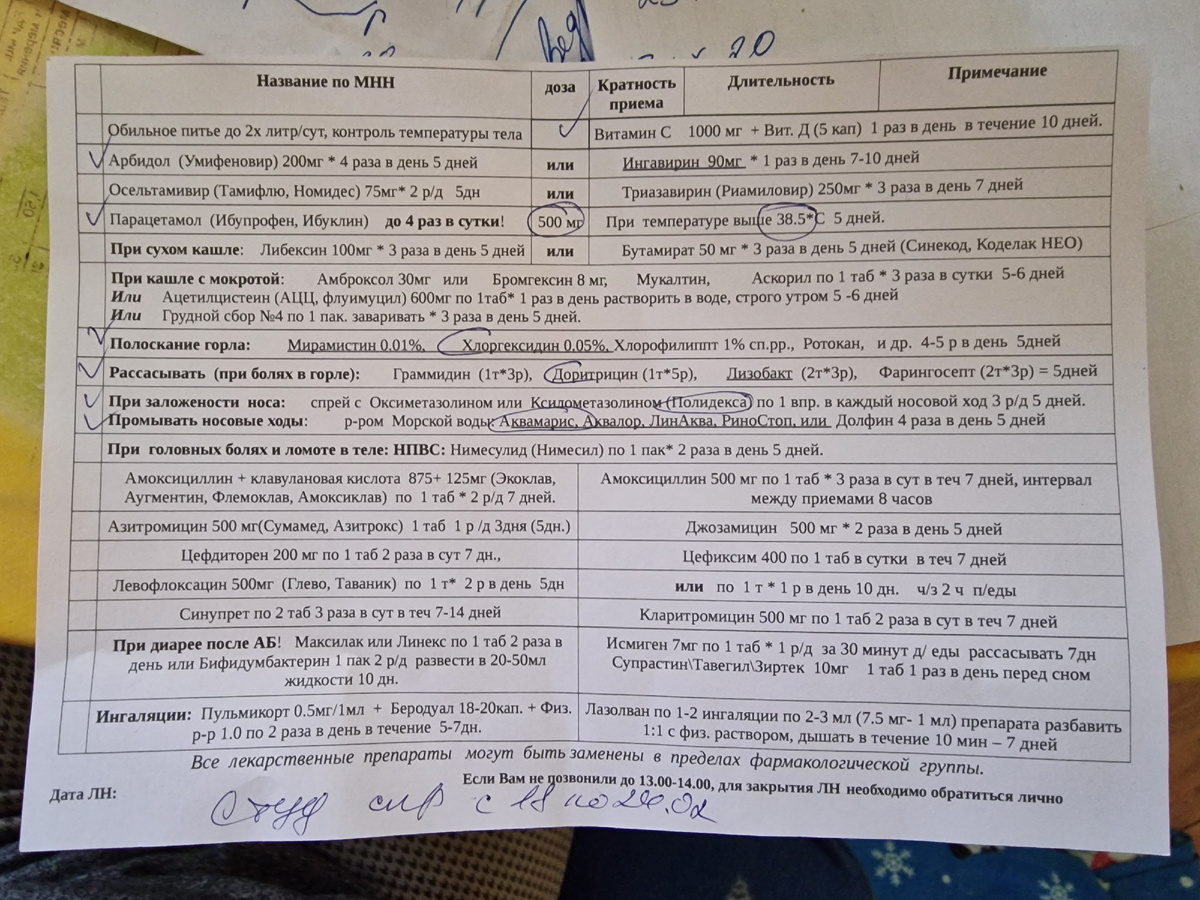 20
Название по МНН
доза
Кратность приема
Длительность
Примечание
Обильное питье до 2х литр/сут, контроль температуры тела
Витамин С 1000 мг + Вит. Д (5 кап) 1 раз в день в течение 10 дней.
Арбидол (Умифеновир) 200мг * 4 раза в день 5 дней
или
Ингавирин 90мг * 1 раз в день 7-10 дней
Осельтамивир (Тамифлю, Номидес) 75мг* 2 р/д 5дн
или
Триазавирин (Риамиловир) 250мг * 3 раза в день 7 дней
Парацетамол (Ибупрофен, Ибуклин) до 4 раз в сутки!
500 мг
При температуре выше 38.5*С 5 дней.
При сухом кашле: Либексин 100мг * 3 раза в день 5 дней
или
Бутамират 50 мг * 3 раза в день 5 дней (Синекод, Коделак НЕО)
При кашле с мокротой: Амброксол 30мг или Бромгексин 8 мг, Мукалтин, Аскорил по 1 таб * 3 раза в сутки 5-6 дней
Или Ацетилцистеин (АЦЦ, флуимуцил) 600мг по 1таб* 1 раз в день растворить в воде, строго утром 5 -6 дней
Или Грудной сбор №4 по 1 пак. заваривать * 3 раза в день 5 дней.
Полоскание горла: Мирамистин 0.01%, Хлоргексидин 0.05%, Хлорофилиппт 1% сп.рр., Ротокан, и др. 4-5 р в день 5дней
Рассасывать (при болях в горле): Граммидин (1т*3р), Доритрицин (1т*5р), Лизобакт (2т*3р), Фарингосепт (2т*3р) = 5дней
При заложености носа: спрей с Оксиметазолином или Ксилометазолином (Полидекса) по 1 впр. в каждый носовой ход 3 р/д 5 дней.
Промывать носовые ходы: р-ром Морской воды: Аквамарис, Аквалор, ЛинАква, РиноСтоп, или Долфин 4 раза в день 5 дней
При головных болях и ломоте в теле: НПВС: Нимесулид (Нимесил) по 1 пак* 2 раза в день 5 дней.
Амоксициллин + клавулановая кислота 875+ 125мг (Экоклав,
Аугментин, Флемоклав, Амоксиклав) по 1 таб * 2 р/д 7 дней.
Амоксициллин 500 мг по 1 таб * 3 раза в сут в теч 7 дней, интервал
между приемами 8 часов
Азитромицин 500 мг(Сумамед, Азитрокс) 1 таб 1 р /д 3дня (5дн.)
Джозамицин 500 мг * 2 раза в день 5 дней
Цефдиторен 200 мг по 1 таб 2 раза в сут 7 дн.,
Цефиксим 400 по 1 таб в сутки в теч 7 дней
Левофлоксацин 500мг (Глево, Таваник) по 1 т* 2 р в день 5дн
или по 1 т * 1 р в день 10 дн. ч/з 2 ч п/еды
Синупрет по 2 таб 3 раза в сут в теч 7-14 дней
Кларитромицин 500 мг по 1 таб 2 раза в сут в теч 7 дней
При диарее после АБ! Максилак или Линекс по 1 таб 2 раза в
день или Бифидумбактерин 1 пак 2 р/д развести в 20-50мл
жидкости 10 дн.
Исмиген 7мг по 1 таб * 1 р/д за 30 минут д/ еды рассасывать 7дн
Супрастин\Тавегил\Зиртек 10мг 1 таб 1 раз в день перед сном
Ингаляции: Пульмикорт 0.5мг/1мл + Беродуал 18-20кап. + Физ.
р-р 1.0 по 2 раза в день в течение 5-7дн.
Лазолван по 1-2 ингаляции по 2-3 мл (7.5 мг- 1 мл) препарата разбавить
1:1 с физ. раствором, дышать в течение 10 мин – 7 дней
Все лекарственные препараты могут быть заменены в пределах фармакологической группы.
Если Вам не позвонили до 13.00-14.00, для закрытия ЛН необходимо обратиться лично
Дата ЛН:
Студ спр с 18 по 26.02